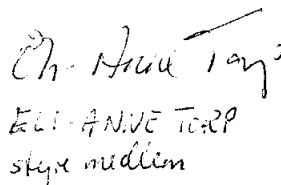 Eli-Anne Torp
ELI-ANNE TORP
styremedlem